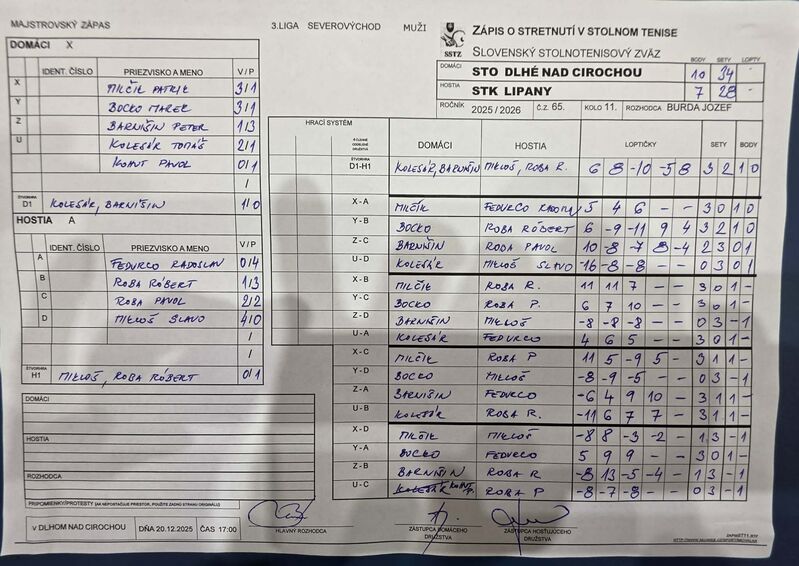 MAJSTROVSKÝ ZÁPAS
3.LIGA SEVEROVÝCHOD MUŽI
ZÁPIS O STRETNUTÍ V STOLNOM TENISE
SSTZ
SLOVENSKÝ STOLNOTENISOVÝ ZVÄZ
BODY SETY LOPTY
DOMÁCI STO DLHÉ NAD CIROCHOU 10 34 -
HOSTIA STK LIPANY 7 28 -
ROČNÍK 2025 / 2026 č.z. 65. KOLO 11. ROZHODCA BURDA JOZEF
DOMÁCI X
IDENT. ČÍSLO PRIEZVISKO A MENO V / P
X MILČÍK PATRIK 3/1
Y BOCKO MAREK 3/1
Z BARNIŠIN PETER 1/3
U KOLESÁR TOMÁŠ 2/1
KOHUT PAVOL 0/1
/
ŠTVORHRA D1 KOLESÁR, BARNIŠIN 1/0
HOSTIA A
IDENT. ČÍSLO PRIEZVISKO A MENO V / P
A FEDURCO RADOSLAV 0/4
B ROBA RÓBERT 1/3
C ROBA PAVOL 2/2
D MIKLOŠ SLAVO 4/0
/
/
ŠTVORHRA H1 MIKLOŠ, ROBA RÓBERT 0/1
HRACÍ SYSTÉM DOMÁCI HOSTIA LOPTIČKY SETY BODY
4-ČLENNÉ DRUŽSTVÁ
ŠTVORHRA D1-H1 KOLESÁR, BARNIŠIN MIKLOŠ, ROBA R. 6 8 -10 -5 8 3 2 1 0
X - A MILČÍK FEDURCO 5 4 6 - - 3 0 1 0
Y - B BOCKO ROBA RÓBERT 6 -9 -11 9 4 3 2 1 0
Z - C BARNIŠIN ROBA PAVOL 10 -8 -7 8 -4 2 3 0 1
U - D KOLESÁR MIKLOŠ SLAVO -16 -8 -8 - - 0 3 0 1
X - B MILČÍK ROBA R. 11 11 7 - - 3 0 1 -
Y - C BOCKO ROBA P. 6 7 10 - - 3 0 1 -
Z - D BARNIŠIN MIKLOŠ -8 -8 -8 - - 0 3 - 1
U - A KOLESÁR FEDURCO 4 6 5 - - 3 0 1 -
X - C MILČÍK ROBA P 11 5 -9 5 - 3 1 1 -
Y - D BOCKO MIKLOŠ -8 -9 -5 - - 0 3 - 1
Z - A BARNIŠIN FEDURCO -6 4 9 10 - 3 1 1 -
U - B KOLESÁR ROBA R. -11 6 7 7 - 3 1 1 -
X - D MILČÍK MIKLOŠ -8 8 -3 -2 - 1 3 - 1
Y - A BOCKO FEDURCO 5 9 9 - - 3 0 1 -
Z - B BARNIŠIN ROBA R -8 13 -5 -4 - 1 3 - 1
U - C KOLESÁR KOHUT P. ROBA P -8 -7 -8 - - 0 3 - 1
DOMÁCI
HOSTIA
ROZHODCA
PRIPOMIENKY/PROTESTY (AK NEPOSTAČUJE PRIESTOR, POUŽITE ZADNÚ STRANU ORIGINÁLU)
V DLHOM NAD CIROCHOU DŇA 20.12.2025 ČAS 17:00
HLAVNÝ ROZHODCA
ZÁSTUPCA DOMÁCEHO DRUŽSTVA
ZÁSTUPCA HOSŤUJÚCEHO DRUŽSTVA